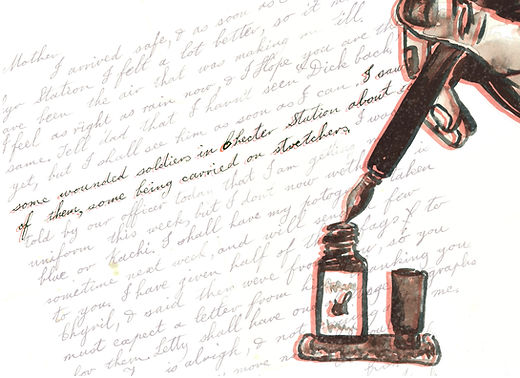 Mother,
I arrived safe, & as soon as
Station I felt a lot better, so it
ave been the air that was making me ill.
I feel as right as rain now & I Hope you are the
same. Tell dad that I havn't seen Dick back,
yet, but I shall see him as soon as I can. I saw
some wounded soldiers in Chester Station about
of them, some being carried on stretchers. I was
told by our officer today that I am getting
uniform this week, but I don't now wether
blue or kacki. I shall have my potograph taken
sometime next week, and will send a few
to you. I have given half of the to
, & said them were from you, so you
must expect a letter from thanking you
for them. Letty shall have our photographs
is alrigh, & not me.
move